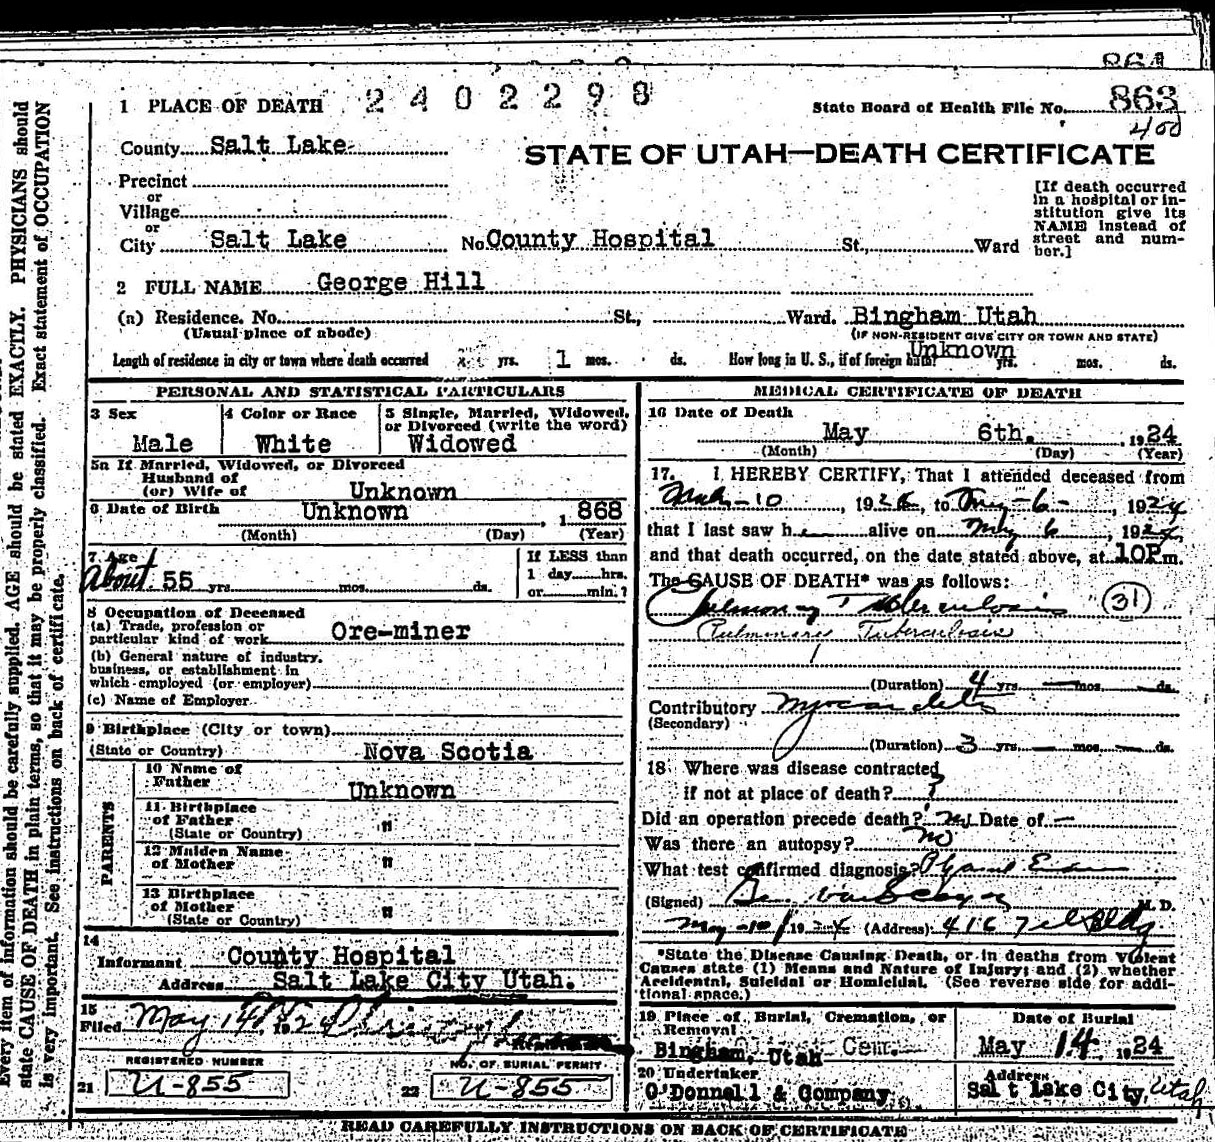 864
1 PLACE OF DEATH 2402298 State Board of Health File No. 863
400
County Salt Lake
STATE OF UTAH—DEATH CERTIFICATE
Precinct
or
Village
or
City Salt Lake No County Hospital St., Ward
[If death occurred in a hospital or in-
stitution give its
NAME instead of
street and num-
ber.]
2 FULL NAME George Hill
(a) Residence. No. St., Ward. Bingham Utah
(Usual place of abode) (IF NON-RESIDENT GIVE CITY OR TOWN AND STATE)
Length of residence in city or town where death occurred yrs. 1 mos. ds. How long in U. S., if of foreign birth? Unknown yrs. mos. ds.
PERSONAL AND STATISTICAL PARTICULARS
3 Sex 4 Color or Race 5 Single, Married, Widowed,
or Divorced (write the word)
Male White Widowed
5a If Married, Widowed, or Divorced
Husband of
(or) Wife of Unknown
6 Date of Birth Unknown , 1 868
(Month) (Day) (Year)
7 Age If LESS than
About 55 yrs. mos. ds. 1 day hrs.
or min.?
8 Occupation of Deceased
(a) Trade, profession or
particular kind of work Ore-miner
(b) General nature of industry,
business, or establishment in
which employed (or employer)
(c) Name of Employer
9 Birthplace (City or town)
(State or Country) Nova Scotia
PARENTS
10 Name of
Father Unknown
11 Birthplace
of Father "
(State or Country)
12 Maiden Name
of Mother "
13 Birthplace
of Mother "
(State or Country)
14
Informant County Hospital
Address Salt Lake City Utah.
15
Filed May 14
REGISTERED NUMBER NO. OF BURIAL PERMIT
21 U-855 22 U-855
MEDICAL CERTIFICATE OF DEATH
16 Date of Death
May 6th. , 1924
(Month) (Day) (Year)
17. I HEREBY CERTIFY, That I attended deceased from
10 , 192 , to May-6- , 1924
that I last saw h alive on May 6 , 1924,
and that death occurred, on the date stated above, at 10P m.
The CAUSE OF DEATH* was as follows:
Pulmonary Tuberculosis (31)
Pulmonary Tuberculosis
(Duration) 4 yrs. — mos. — ds.
Contributory Myocarditis
(Secondary)
(Duration) 3 yrs. — mos. — ds.
18 Where was disease contracted
if not at place of death? ?
Did an operation precede death? No Date of —
Was there an autopsy? no
What test confirmed diagnosis?
(Signed) M. D.
May 10 , 1924 (Address) 416 Bldg
*State the Disease Causing Death, or in deaths from Violent
Causes state (1) Means and Nature of Injury; and (2) whether
Accidental, Suicidal or Homicidal. (See reverse side for addi-
tional space.)
19 Place of Burial, Cremation, or
Removal Date of Burial
Bingham, Utah Cem. May 14 1924
20 Undertaker Address
O'Donnell & Company Salt Lake City Utah
READ CAREFULLY INSTRUCTIONS ON BACK OF CERTIFICATE
Every item of information should be carefully supplied. AGE should be stated EXACTLY. PHYSICIANS should
state CAUSE OF DEATH in plain terms, so that it may be properly classified. Exact statement of OCCUPATION
is very important. See instructions on back of certificate.